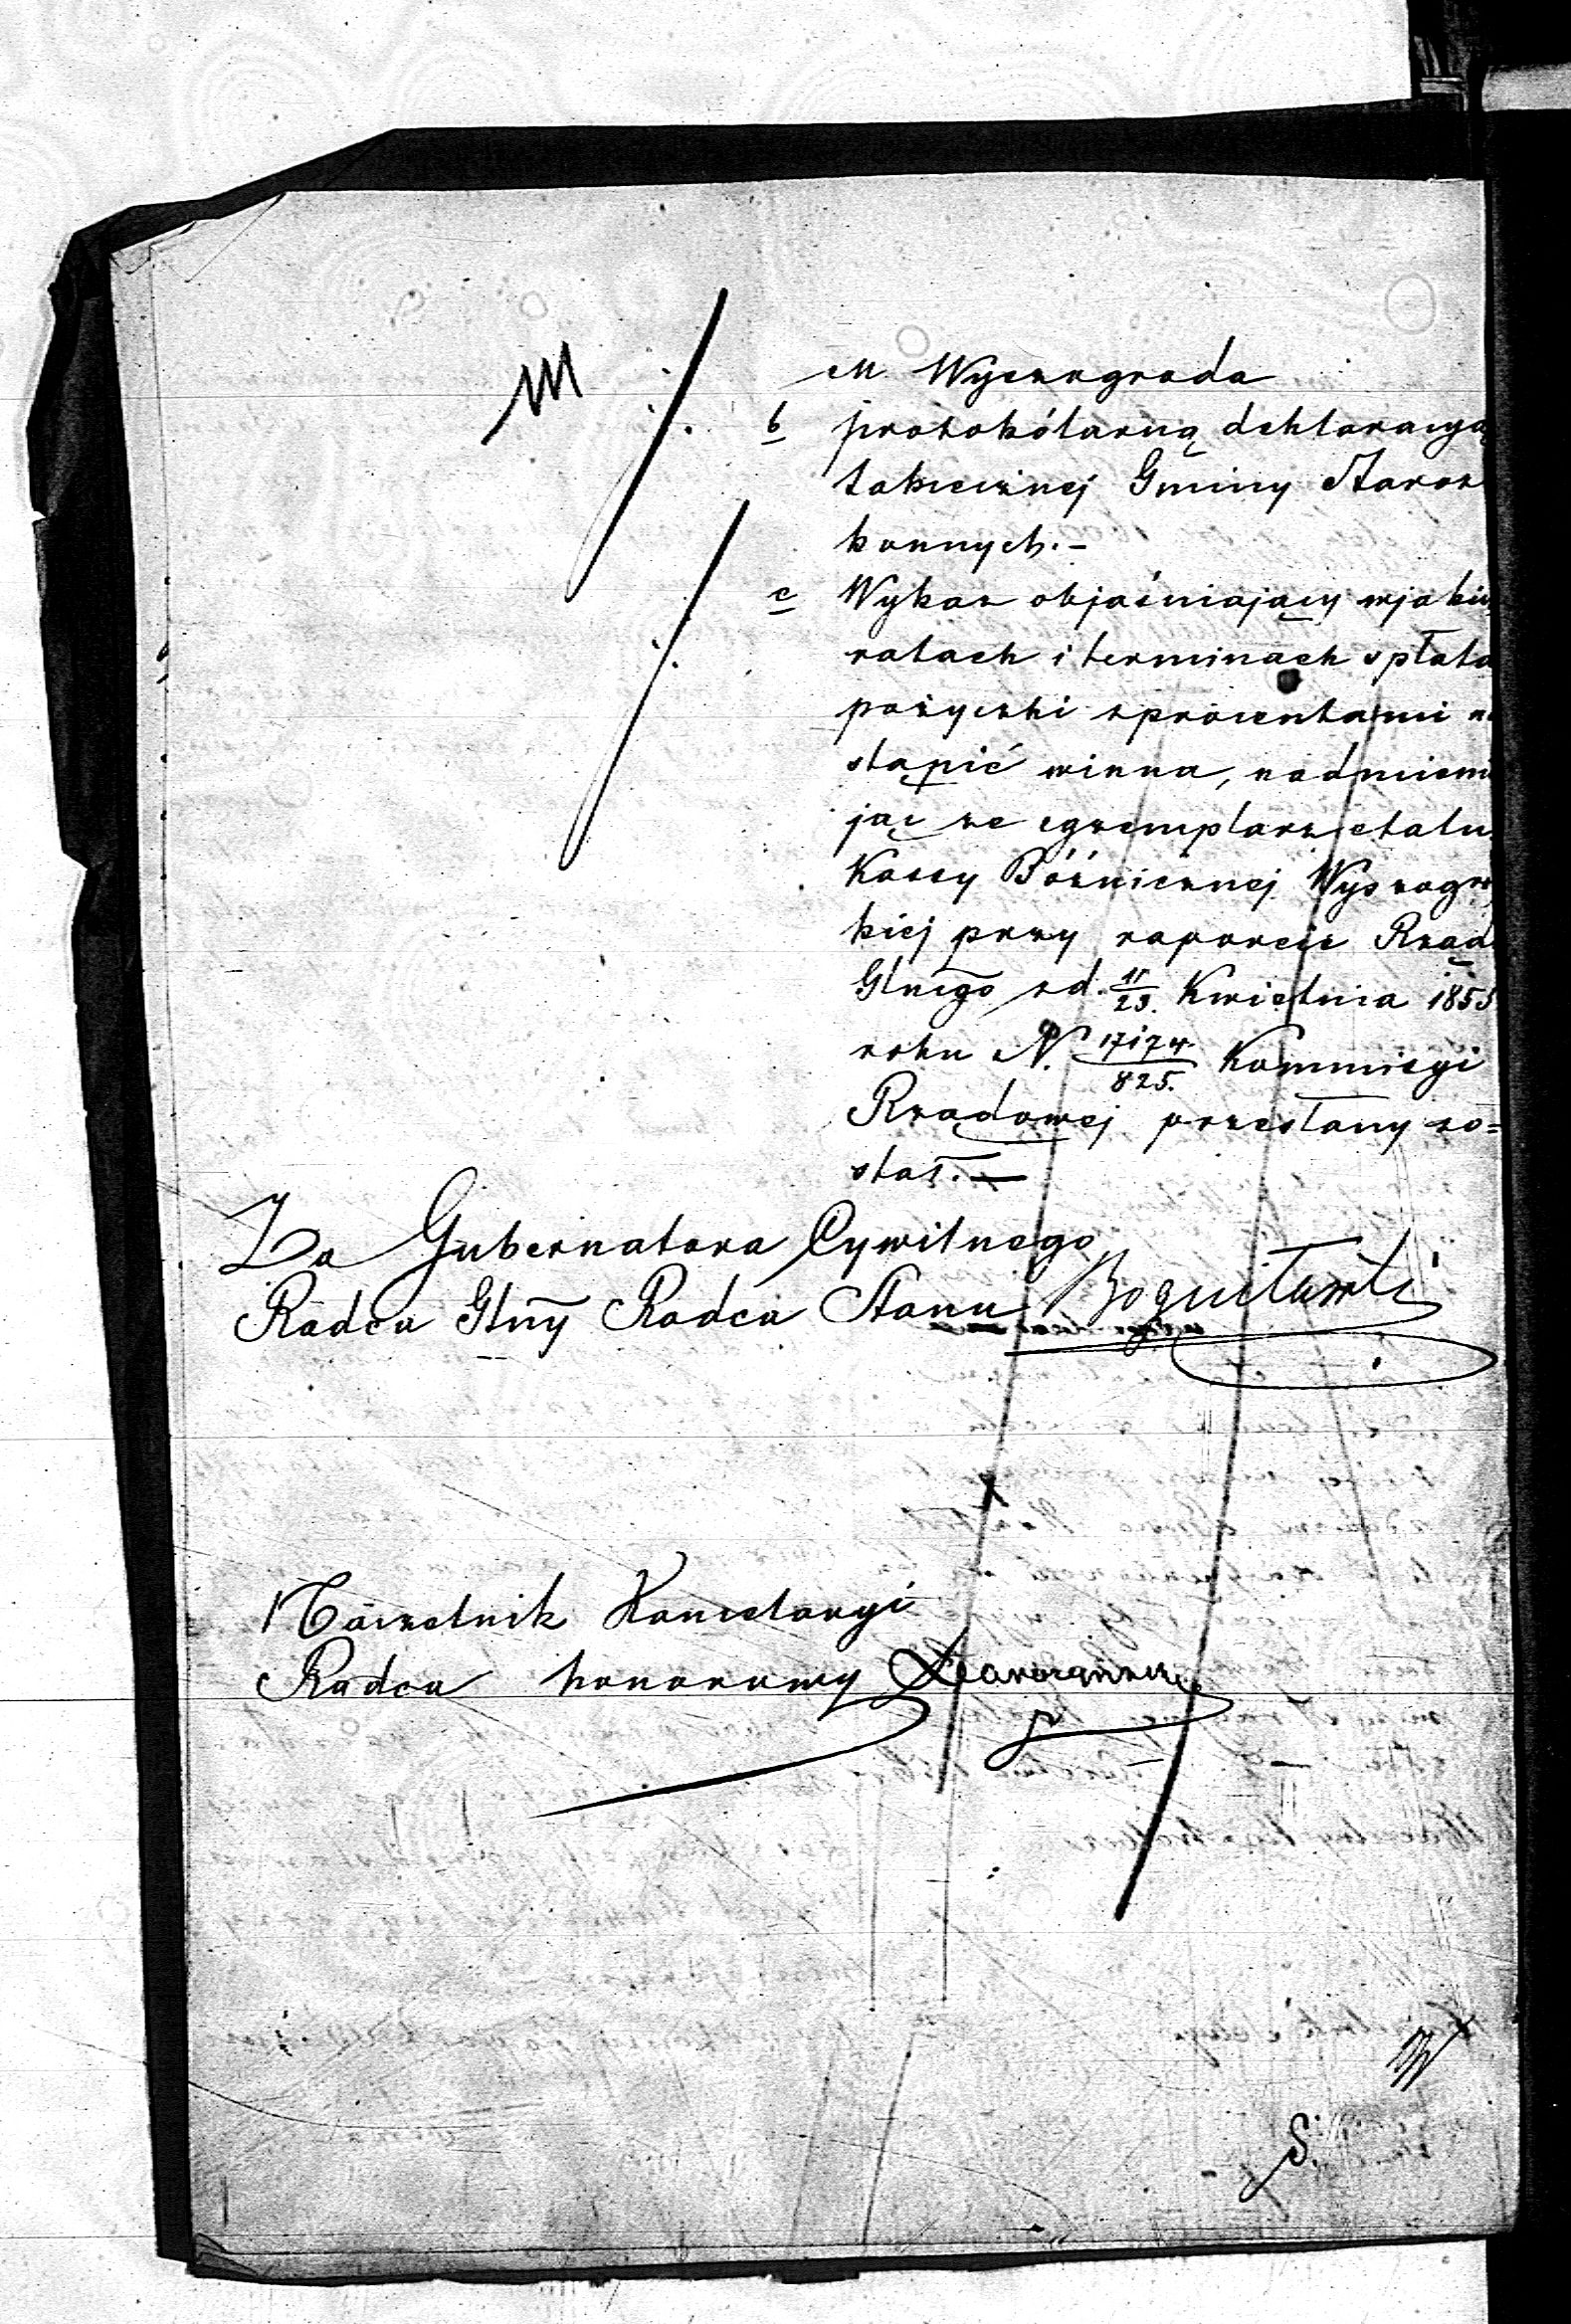 M. Wyszogroda
b protokólarną deklaracyą
takiecznej Gminy Staroz
konnych.-
c Wykaz objaśniający w jakich
ratach i terminach spłata
pożyczki z procentami na
stąpić winna, nadmieni
jąc że egzemplarz etatu
Kassy Bóźnicznej Wyszogr
kiej przy raporcie Rządu
Glnego z d. 11/23. Kwietnia 1855
roku N. 17174/825. Kommisyi
Rządowej przesłany zo=
stał.—
Za Gubernatora Cywilnego
Radca Glny Radca Stanu
Naczelnik Kancelaryi
Radca honorowy
S.